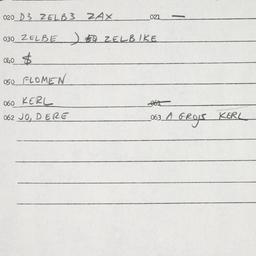 020 D3 ZELB3 ZAX 021 —
030 ZELBE ) ZELBIKE
040 $
050 FLOMEN
060 KERL 061
062 JO, DERE 063 A GROJS KERL